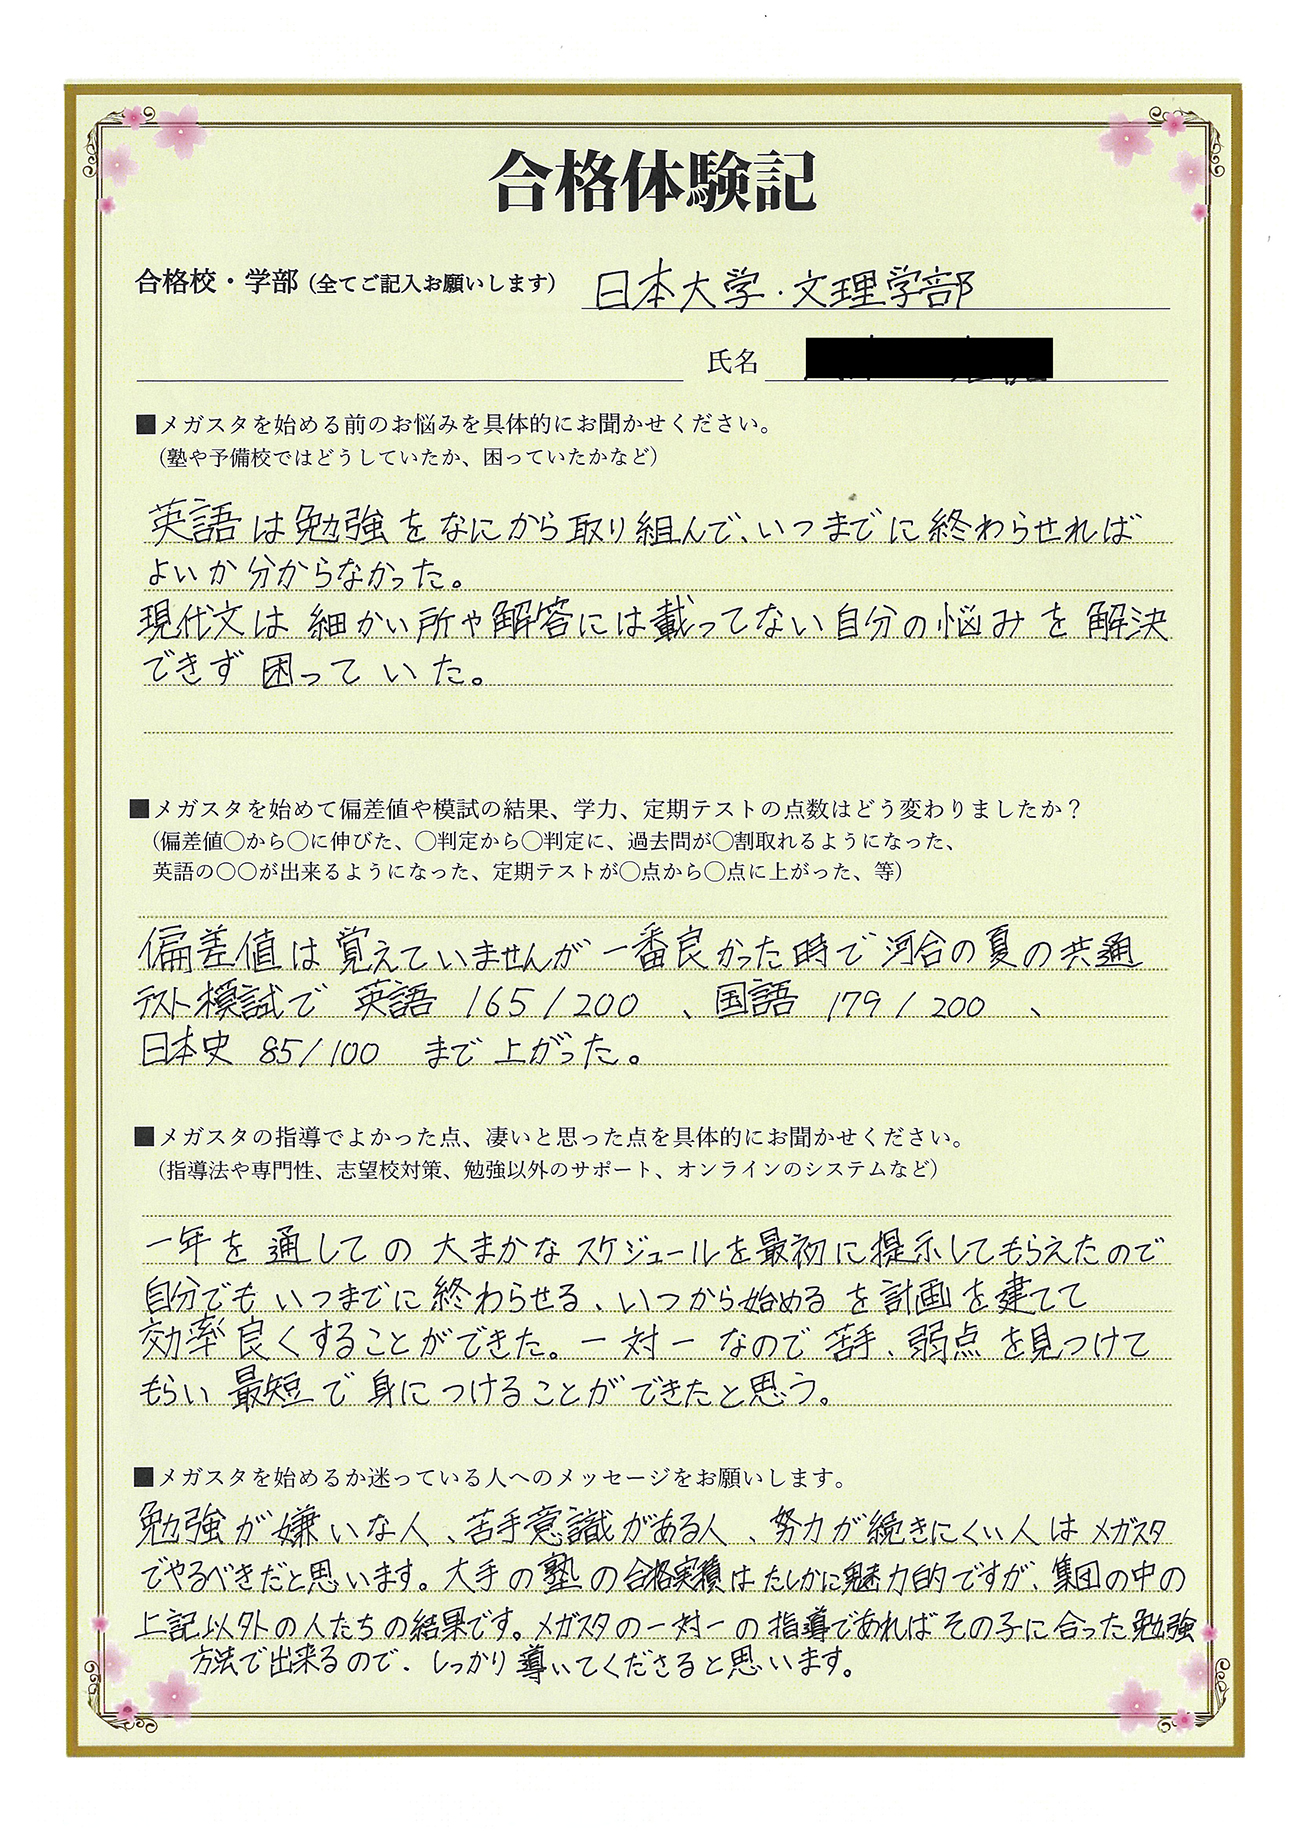 合格体験記
合格校・学部（全てご記入お願いします） 日本大学・文理学部
氏名
■メガスタを始める前のお悩みを具体的にお聞かせください。
（塾や予備校ではどうしていたか、困っていたかなど）
英語は勉強をなにから取り組んで、いつまでに終わらせれば
よいか分からなかった。
現代文は細かい所や解答には載ってない自分の悩みを解決
できず困っていた。
■メガスタを始めて偏差値や模試の結果、学力、定期テストの点数はどう変わりましたか？
（偏差値〇から〇に伸びた、〇判定から〇判定に、過去問が〇割取れるようになった、
英語の〇〇が出来るようになった、定期テストが〇点から〇点に上がった、等）
偏差値は覚えていませんが一番良かった時で河合の夏の共通
テスト模試で 英語 165/200 、国語 179/200 、
日本史 85/100 まで上がった。
■メガスタの指導でよかった点、凄いと思った点を具体的にお聞かせください。
（指導法や専門性、志望校対策、勉強以外のサポート、オンラインのシステムなど）
一年を通しての大まかなスケジュールを最初に提示してもらえたので
自分でもいつまでに終わらせる、いつから始めるを計画を建てて
効率良くすることができた。一対一なので苦手、弱点を見つけて
もらい最短で身につけることができたと思う。
■メガスタを始めるか迷っている人へのメッセージをお願いします。
勉強が嫌いな人、苦手意識がある人、努力が続きにくい人はメガスタ
でやるべきだと思います。大手の塾の合格実積はたしかに魅力的ですが、集団の中の
上記以外の人たちの結果です。メガスタの一対一の指導であればその子に合った勉強
方法で出来るので、しっかり導いてくださると思います。